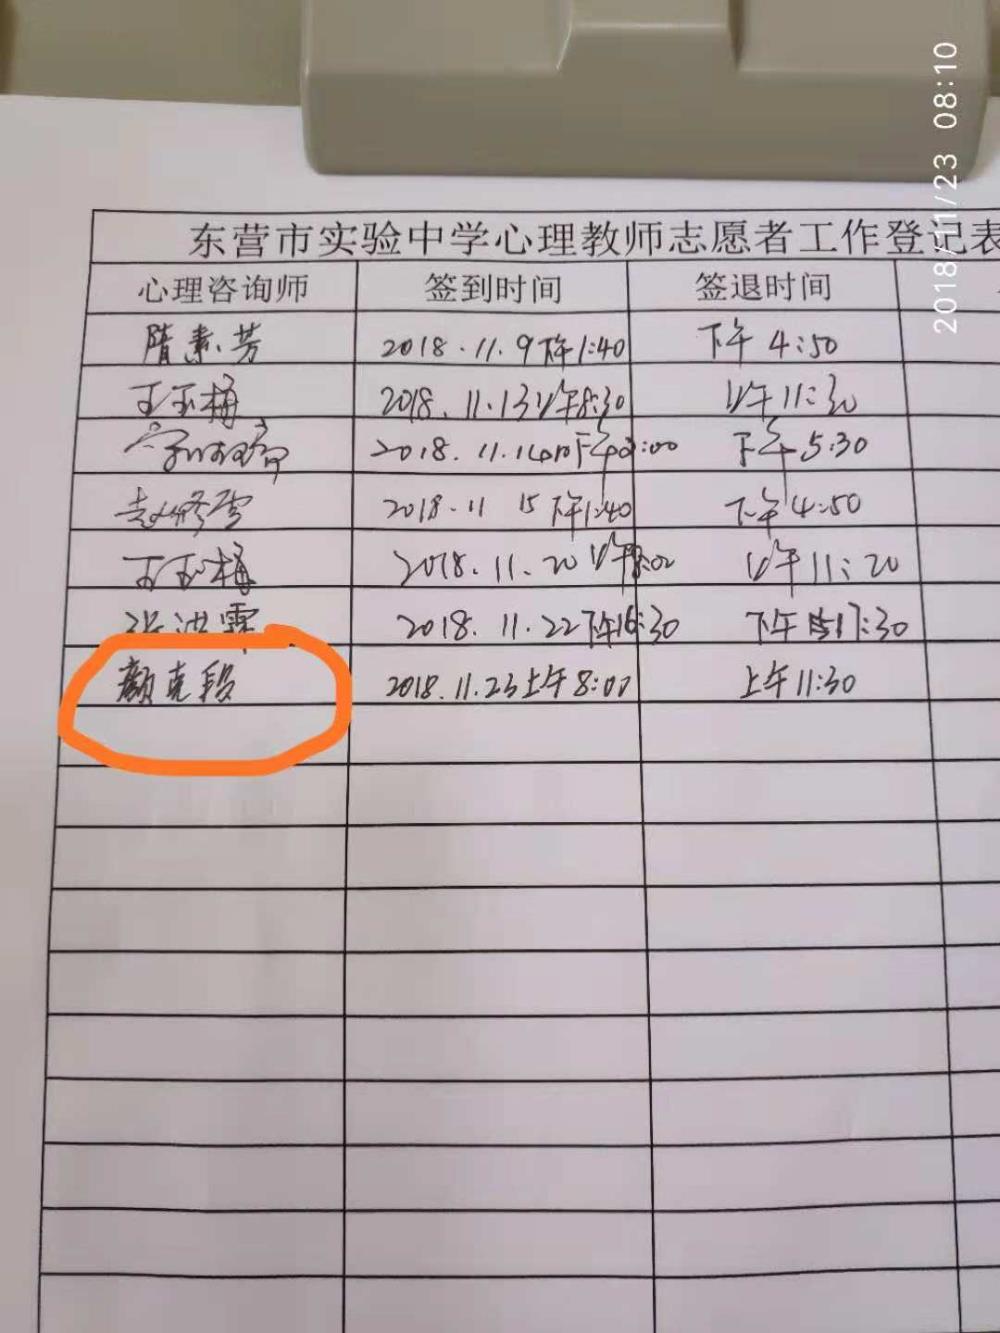 2018/11/23 08:10
东营市实验中学心理教师志愿者工作登记表
心理咨询师 签到时间 签退时间
隋素芳 2018.11.9下午1:40 下午4:50
王玉梅 2018.11.13上午8:30 上午11:30
2018.11.14 下午 :00 下午5:30
赵修雪 2018.11 15 下午1:40 下午4:50
王玉梅 2018.11.20 上午8:00 上午11:20
张洪霖 2018.11.22下午16:30 下午 17:30
颜克段 2018.11.23上午8:00 上午11:30